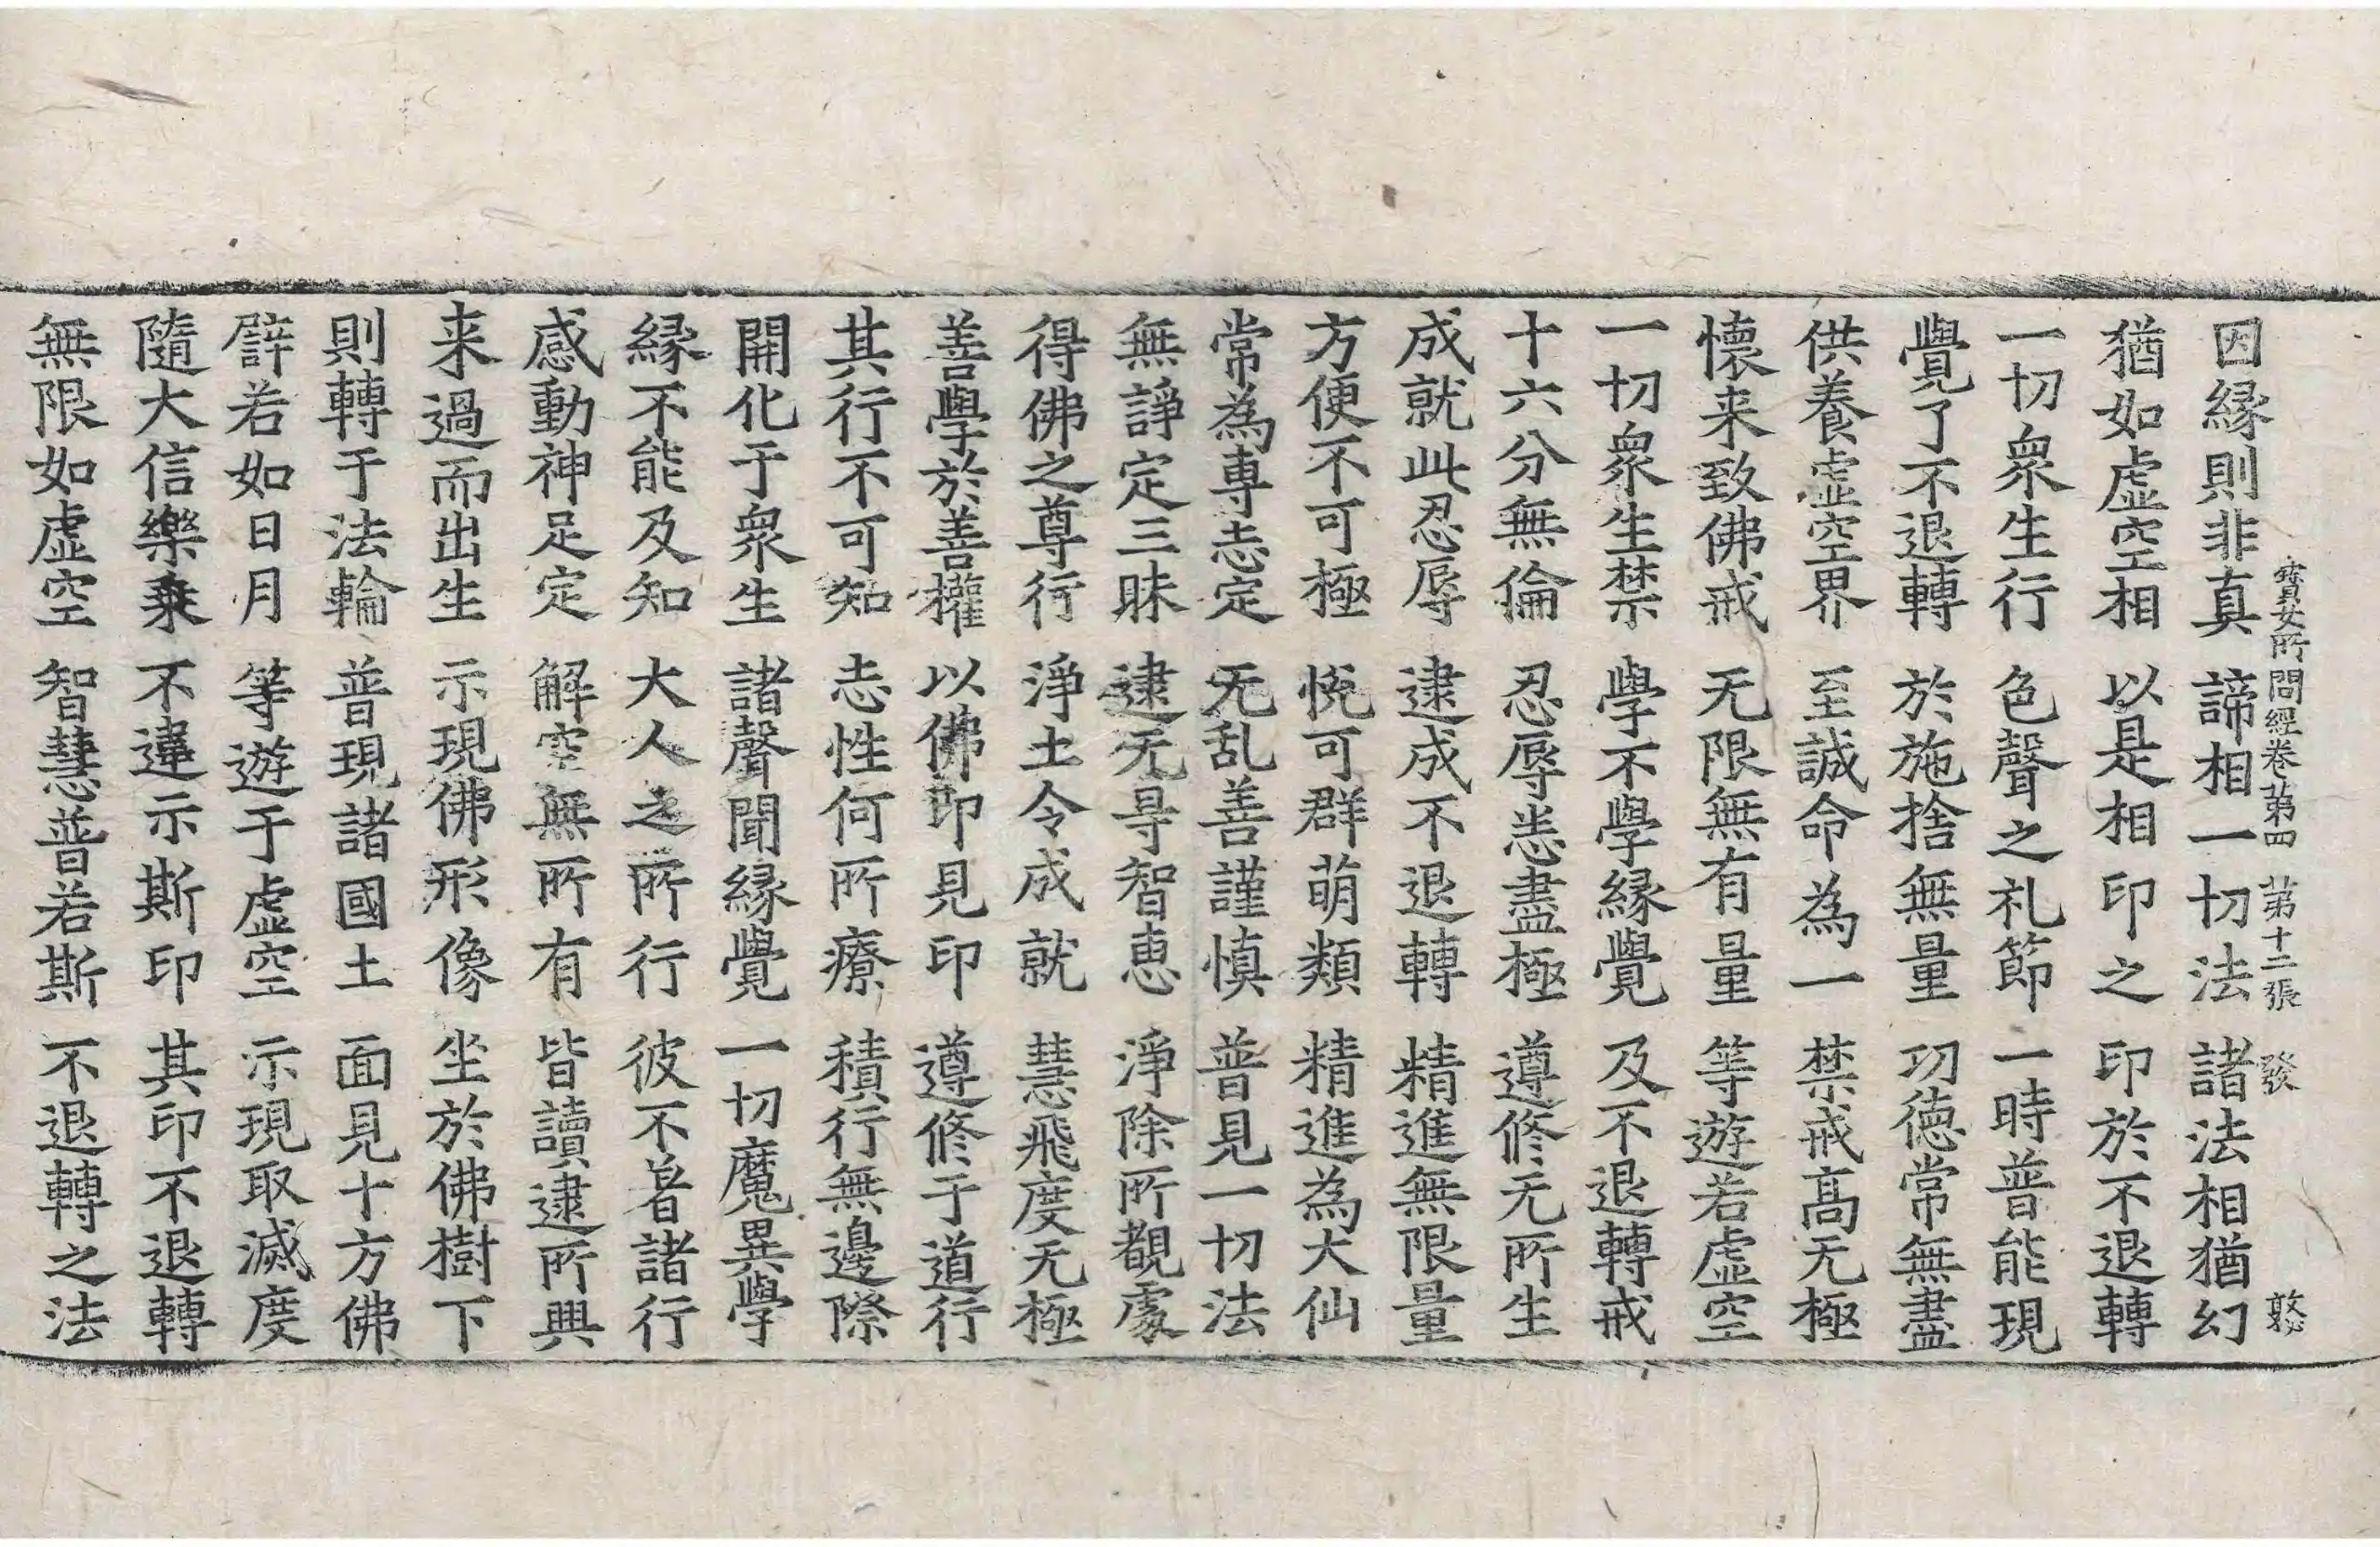 寶女所問經卷第四 第十二張 發 憨
因縁則非真 諦相一切法 諸法相猶幻
猶如虛空相 以是相印之 印於不退轉
一切衆生行 色聲之礼節 一時普能現
覺了不退轉 於施捨無量 功德常無盡
供養虛空界 至誠命為一 禁戒高无極
懷来致佛戒 无限無有量 等遊若虛空
一切衆生禁 學不學縁覺 及不退轉戒
十六分無倫 忍辱恙盡極 遵修无所生
成就此忍辱 逮成不退轉 精進無限量
方便不可極 恱可群萌類 精進為大仙
常為專志定 无乱善謹慎 普見一切法
無諍定三昧 逮无㝵智恵 淨除所覩處
得佛之尊行 淨土令成就 慧飛度无極
善學於善權 以佛印見印 遵修于道行
其行不可知 志性何所療 積行無邊際
開化于衆生 諸聲聞縁覺 一切魔異學
縁不能及知 大人之所行 彼不著諸行
感動神足定 解空無所有 皆讀逮所興
来過而出生 示現佛形像 坐於佛樹下
則轉于法輪 普現諸國土 面見十方佛
譬若如日月 等遊于虛空 示現取滅度
隨大信樂乗 不違示斯印 其印不退轉
無限如虛空 智慧普若斯 不退轉之法